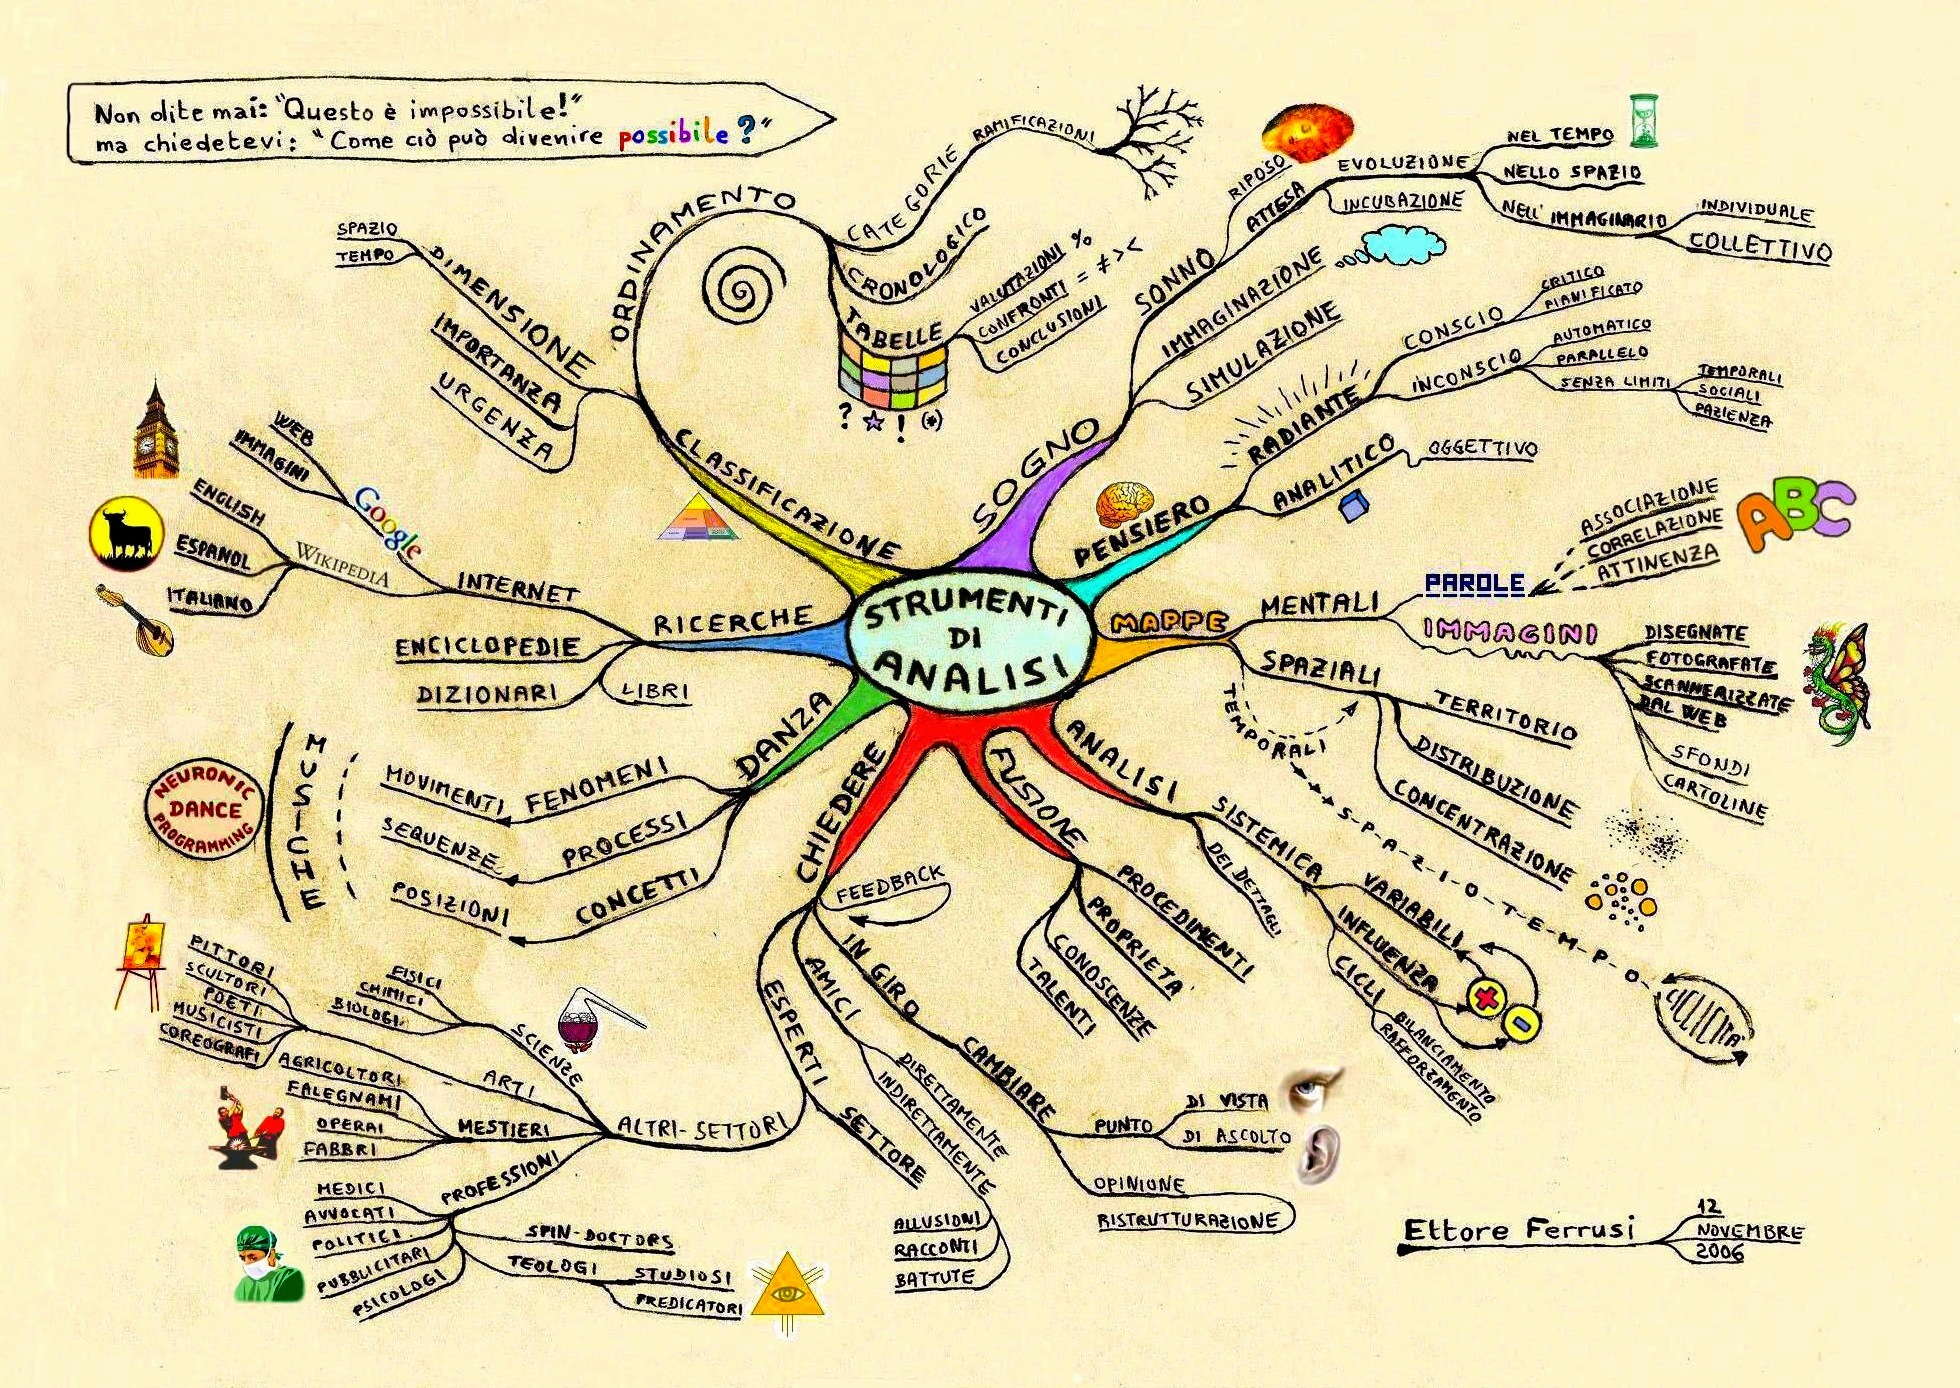 Non dite mai: "Questo è impossibile!"
ma chiedetevi: "Come ciò può divenire possibile?"
STRUMENTI
DI
ANALISI
CLASSIFICAZIONE
DIMENSIONE
SPAZIO
TEMPO
IMPORTANZA
URGENZA
ORDINAMENTO
CATEGORIE
RAMIFICAZIONI
CRONOLOGICO
TABELLE
VALUTAZIONI %
CONFRONTI = ≠ > <
CONCLUSIONI
? ☆ ! (*)
SOGNO
SONNO
RIPOSO
ATTESA
EVOLUZIONE
NEL TEMPO
NELLO SPAZIO
NELL'IMMAGINARIO
INDIVIDUALE
COLLETTIVO
INCUBAZIONE
IMMAGINAZIONE
SIMULAZIONE
PENSIERO
RADIANTE
CONSCIO
CRITICO
PIANIFICATO
INCONSCIO
AUTOMATICO
PARALLELO
SENZA LIMITI
TEMPORALI
SOCIALI
PAZIENZA
ANALITICO
OGGETTIVO
MAPPE
MENTALI
PAROLE
ASSOCIAZIONE
CORRELAZIONE
ATTINENZA
ABC
IMMAGINI
DISEGNATE
FOTOGRAFATE
SCANNERIZZATE
DAL WEB
SFONDI
CARTOLINE
SPAZIALI
TERRITORIO
DISTRIBUZIONE
CONCENTRAZIONE
TEMPORALI
S-P-A-Z-I-O-T-E-M-P-O
CICLICITA'
ANALISI
SISTEMICA
VARIABILI
INFLUENZA
CICLI
BILANCIAMENTO
RAFFORZAMENTO
DEI DETTAGLI
FUSIONE
PROCEDIMENTI
PROPRIETA'
CONOSCENZE
TALENTI
CHIEDERE
FEEDBACK
IN GIRO
CAMBIARE
PUNTO
DI VISTA
DI ASCOLTO
OPINIONE
RISTRUTTURAZIONE
AMICI
DIRETTAMENTE
INDIRETTAMENTE
ALLUSIONI
RACCONTI
BATTUTE
ESPERTI
SETTORE
ALTRI-SETTORI
SCIENZE
FISICI
CHIMICI
BIOLOGI
ARTI
PITTORI
SCULTORI
POETI
MUSICISTI
COREOGRAFI
MESTIERI
AGRICOLTORI
FALEGNAMI
OPERAI
FABBRI
PROFESSIONI
MEDICI
AVVOCATI
POLITICI
PUBBLICITARI
PSICOLOGI
SPIN-DOCTORS
TEOLOGI
STUDIOSI
PREDICATORI
DANZA
FENOMENI
MOVIMENTI
PROCESSI
SEQUENZE
CONCETTI
POSIZIONI
MUSICHE
NEURONIC
DANCE
PROGRAMMING
RICERCHE
INTERNET
Google
WEB
IMMAGINI
WIKIPEDIA
ENGLISH
ESPANOL
ITALIANO
ENCICLOPEDIE
DIZIONARI
LIBRI
Ettore Ferrusi
12
NOVEMBRE
2006